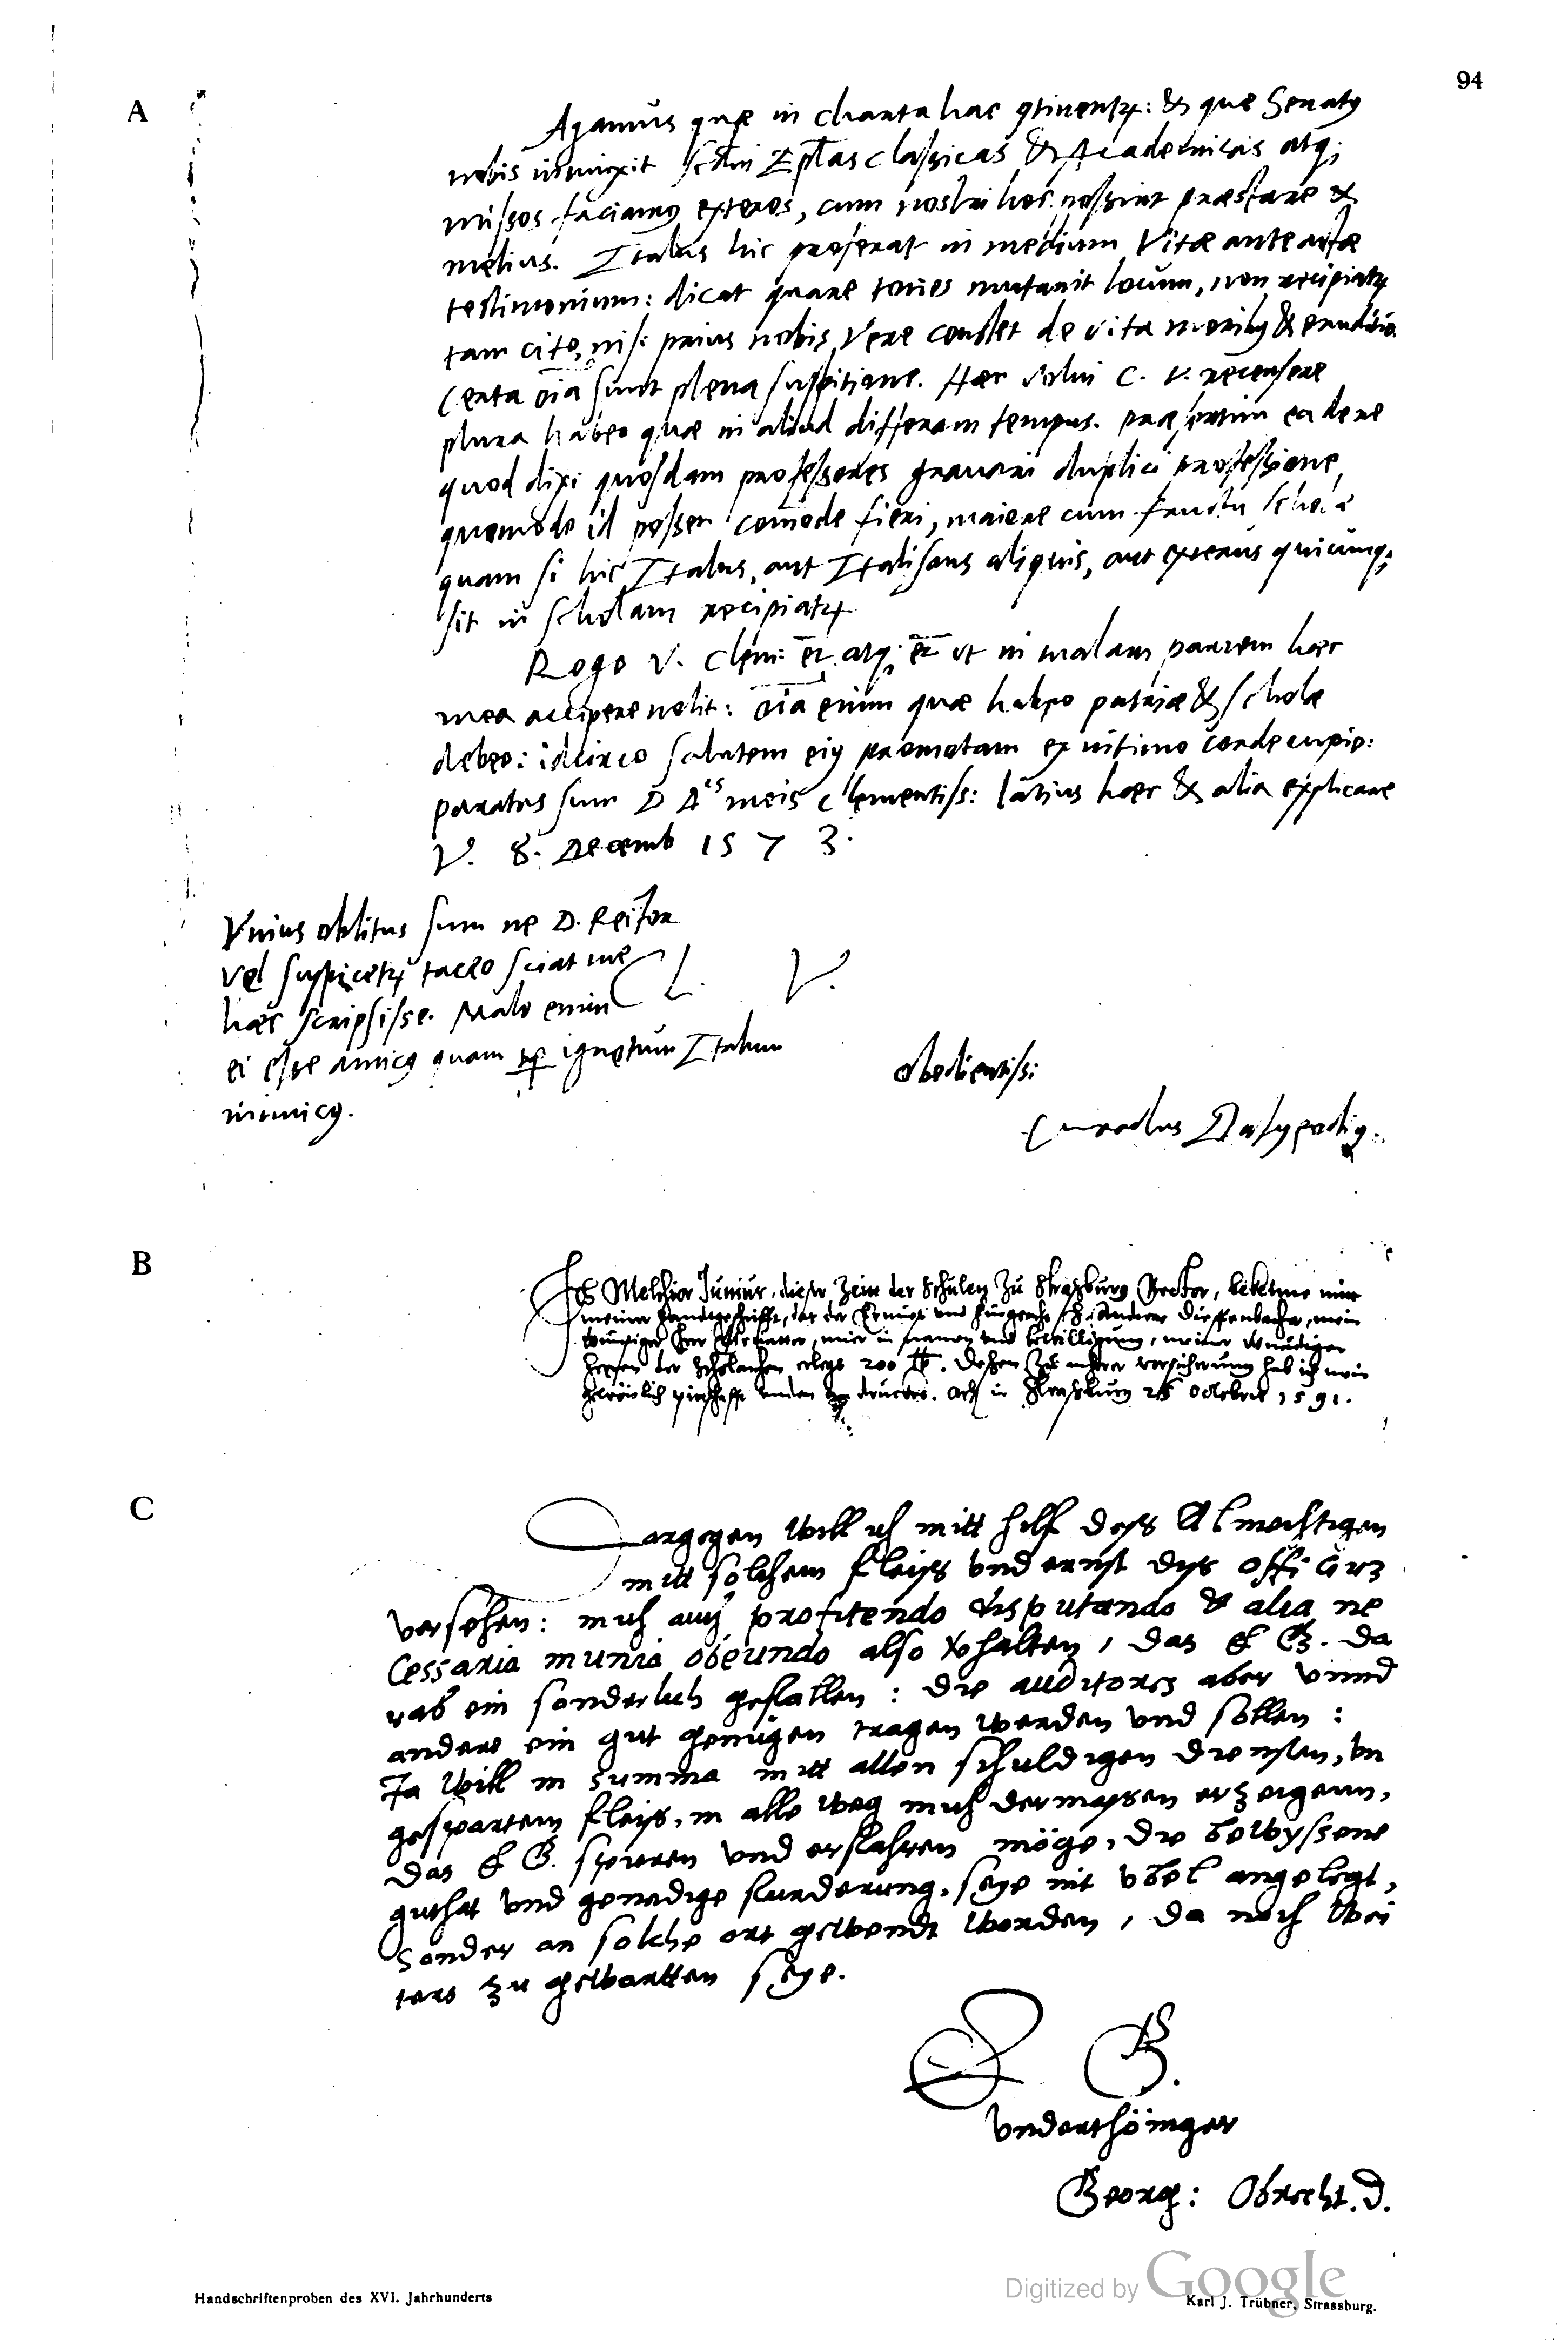 94
A
Agamus quæ in charta hac ꝯtinentꝝ: & quæ Senatꝯ
nobis iniunxit sctm Eptas classicas & Academicas atqꝫ
missos faciamꝯ exteros, cum nostri hoc possint præstare &
melius. Italus hic proferat in medium Vitæ anteactæ
testimonium: dicat quare toties mutarit locum, non recipiatꝝ
tam cito, nisi prius nobis Vere constet de vita moribꝯ & eruditio.
Certa oīa sunt plena suspitione. Hæc volui C. V. recensere
plura habeo quæ in aliud differam tempus. præsertim ea de re
quod dixi quosdam professores gravari duplici professione,
quomodo id posset com̄ode fieri, maiore cum fructu scholæ
quam si hic Italus, aut Italisans aliquis, aut exterus quicunqꝫ
sit in scholam recipiatꝝ
Rogo V. Clem: et atqꝫ et ut in malam partem hæc
mea accipere nolit: oīa enim quæ habeo patriæ & scholæ
debeo: idcirco salutem eiꝯ promotam ex intimo corde cupio:
paratus sum D Aᵉˢ meis clementiss: latius hæc & alia explicare
V. 8. Decemb 1573.
Vnius oblitus sum ne D. Rector
vel suspicetꝝ taceo sciat me
hæc scripsisse. Malo enim
ei esse amicꝯ quam ꝓꝑ ignotum Italum
inimicꝯ.
C. V.
obedientiss:
Cunradus Dasypodiꝯ.
B
Ich Melchior Junius, dieser Zeitt der Schulen zu Straßburg Rector, bekenne mitt
meiner handtgeschrifft, das der Ernuest und fürgeacht h. Andreas Dieffenbacher, mein
günstiger Herr Gevatter, mier in namen und bewilligung, meiner gnädigen
herren der Scholarchen erlegt 200 ℔. Dessen zu mehrer versicherung hab ich mein
gewönlich pitschafft unden druckt. Act in Straßburg 25 Octobris 1591.
C
Dargegen will ich mitt hilf dess Almechtigen
mitt solchem fleiss und ernst dys officium
versehen: mich auch profitendo disputando & alia ne
Cessaria munia obeundo also halten, das E G. da
rab ein sonderlich gefallen: die auditores aber vnnd
andere ein gut genügen tragen werden und sollen:
Ja will in summa mitt allen schuldigen diensten, vn
gespartem fleiss, in alle weg mich dermassen erzeigenn,
das E G. spüren und erfahren möge, die bewyssene
guthat und genedige furderung, seye nit vbel angelegt,
sonder an solche ort gewendt worden, da noch wei
ters zu gewartten seye.
E G.
Underthöniger
Georg: Obrecht. D.
Handschriftenproben des XVI. Jahrhunderts
Digitized by Google
Karl J. Trübner, Strassburg.